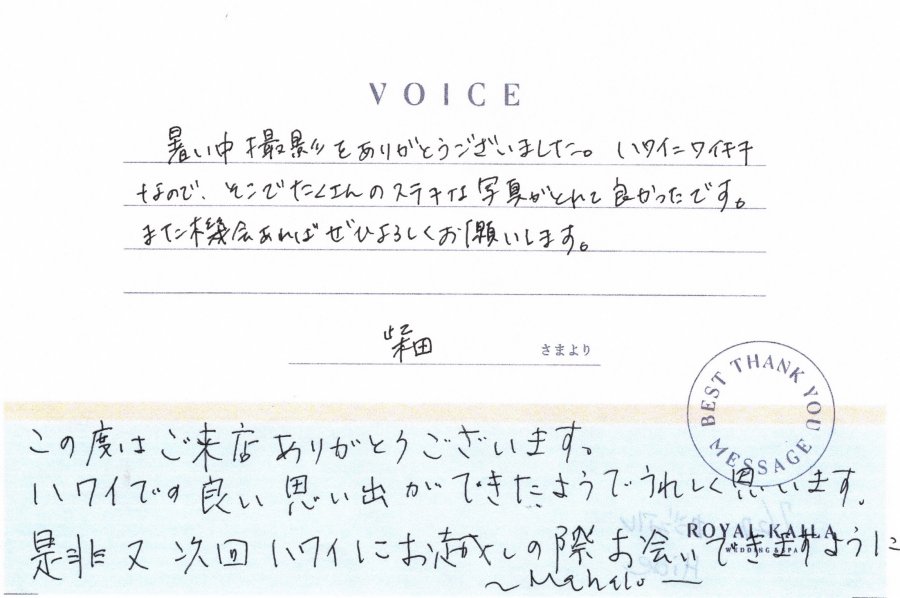 VOICE
暑い中撮影をありがとうございました。ハワイニワイキキ
なので、そこでたくさんのステキな写真がとれて良かったです。
また機会あればぜひよろしくお願いします。
柴田 さまより
BEST THANK YOU MESSAGE
この度はご来店ありがとうございます。
ハワイでの良い思い出ができたようでうれしく思います。
是非又次回ハワイにお越しの際お会いできますように
ROYAL KAILA
WEDDING & SPA
～Mahalo―